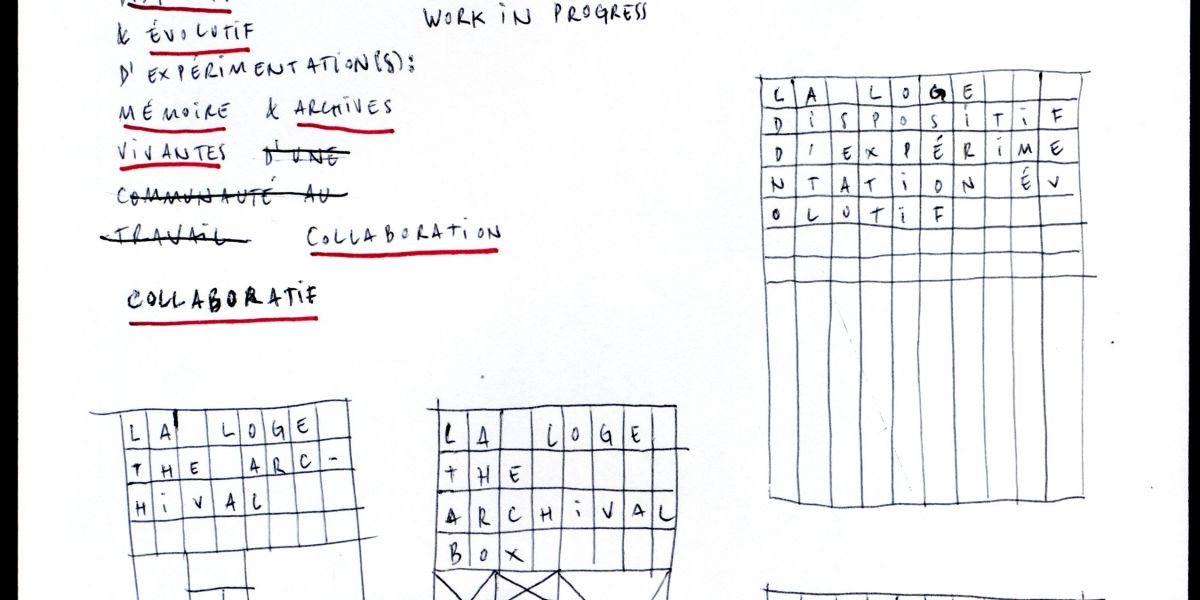 WORK iN PROGRESS
& ÉVOLUTiF
D'EXPÉRiMENTATION(S):
MÉMOiRE & ARCHiVES
ViVANTES D'UNE
COMMUNAUTÉ AU
TRAVAiL COLLABORATiON
COLLABORATiF
LA LOGE
DiSPOSiTiF
D'EXPÉRiME
NTATiON ÉV
OLUTiF
LA LOGE
THE ARC-
HiVAL
LA LOGE
THE
ARCHiVAL
BOX